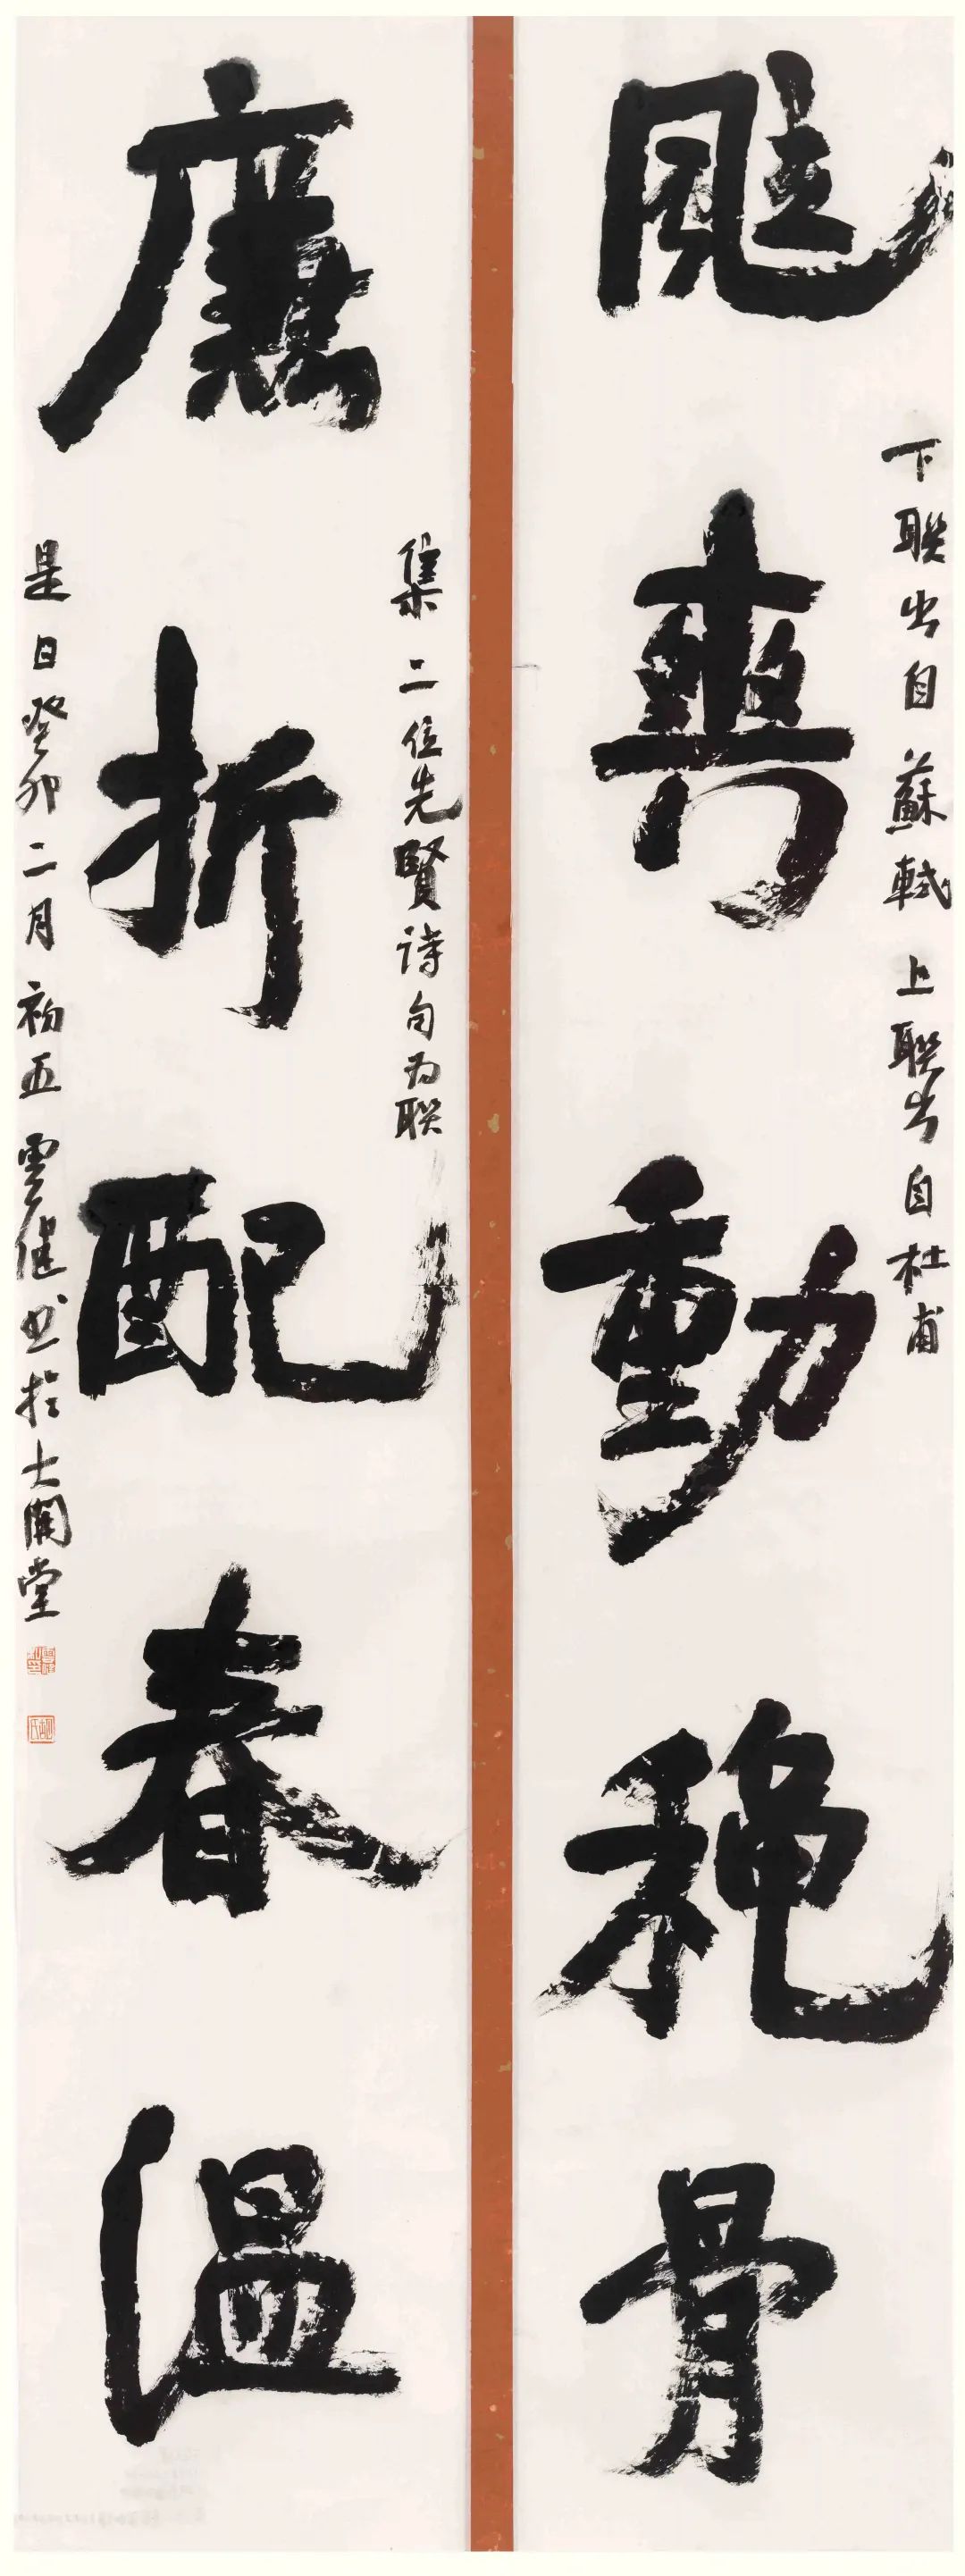 䬃爽動穐骨
下聯出自蘇軾上聯出自杜甫
廉折配春溫
集二位先賢诗句为聯
是日癸卯二月初五雲健书於堂